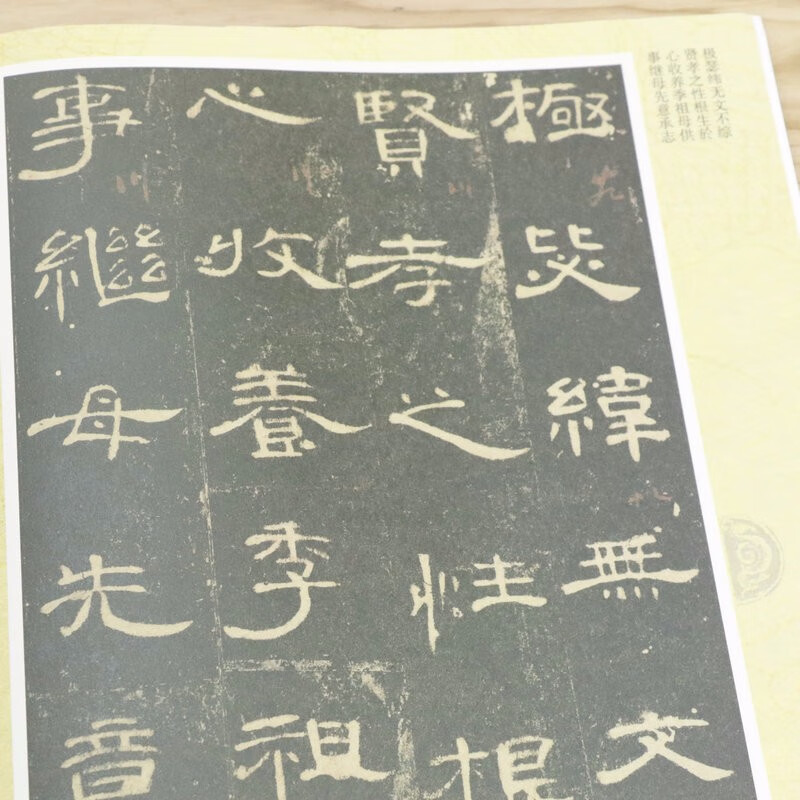 极毖纬无文不综
贤孝之性根生於
心收养季祖母供
事继母先意承志
極毖緯無文
賢孝之性根
心收養季祖
事繼母先意